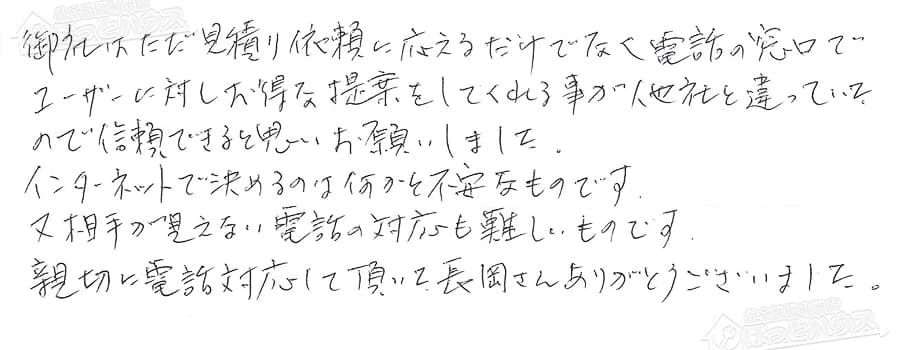 御社はただ見積り依頼に応えるだけでなく電話の窓口で
ユーザーに対しお得な提案をしてくれる事が他社と違っていた
ので信頼できると思いお願いしました。
インターネットで決めるのは何かと不安なものです.
又相手が見えない電話の対応も難しいものです.
親切に電話対応して頂いた長岡さんありがとうございました。